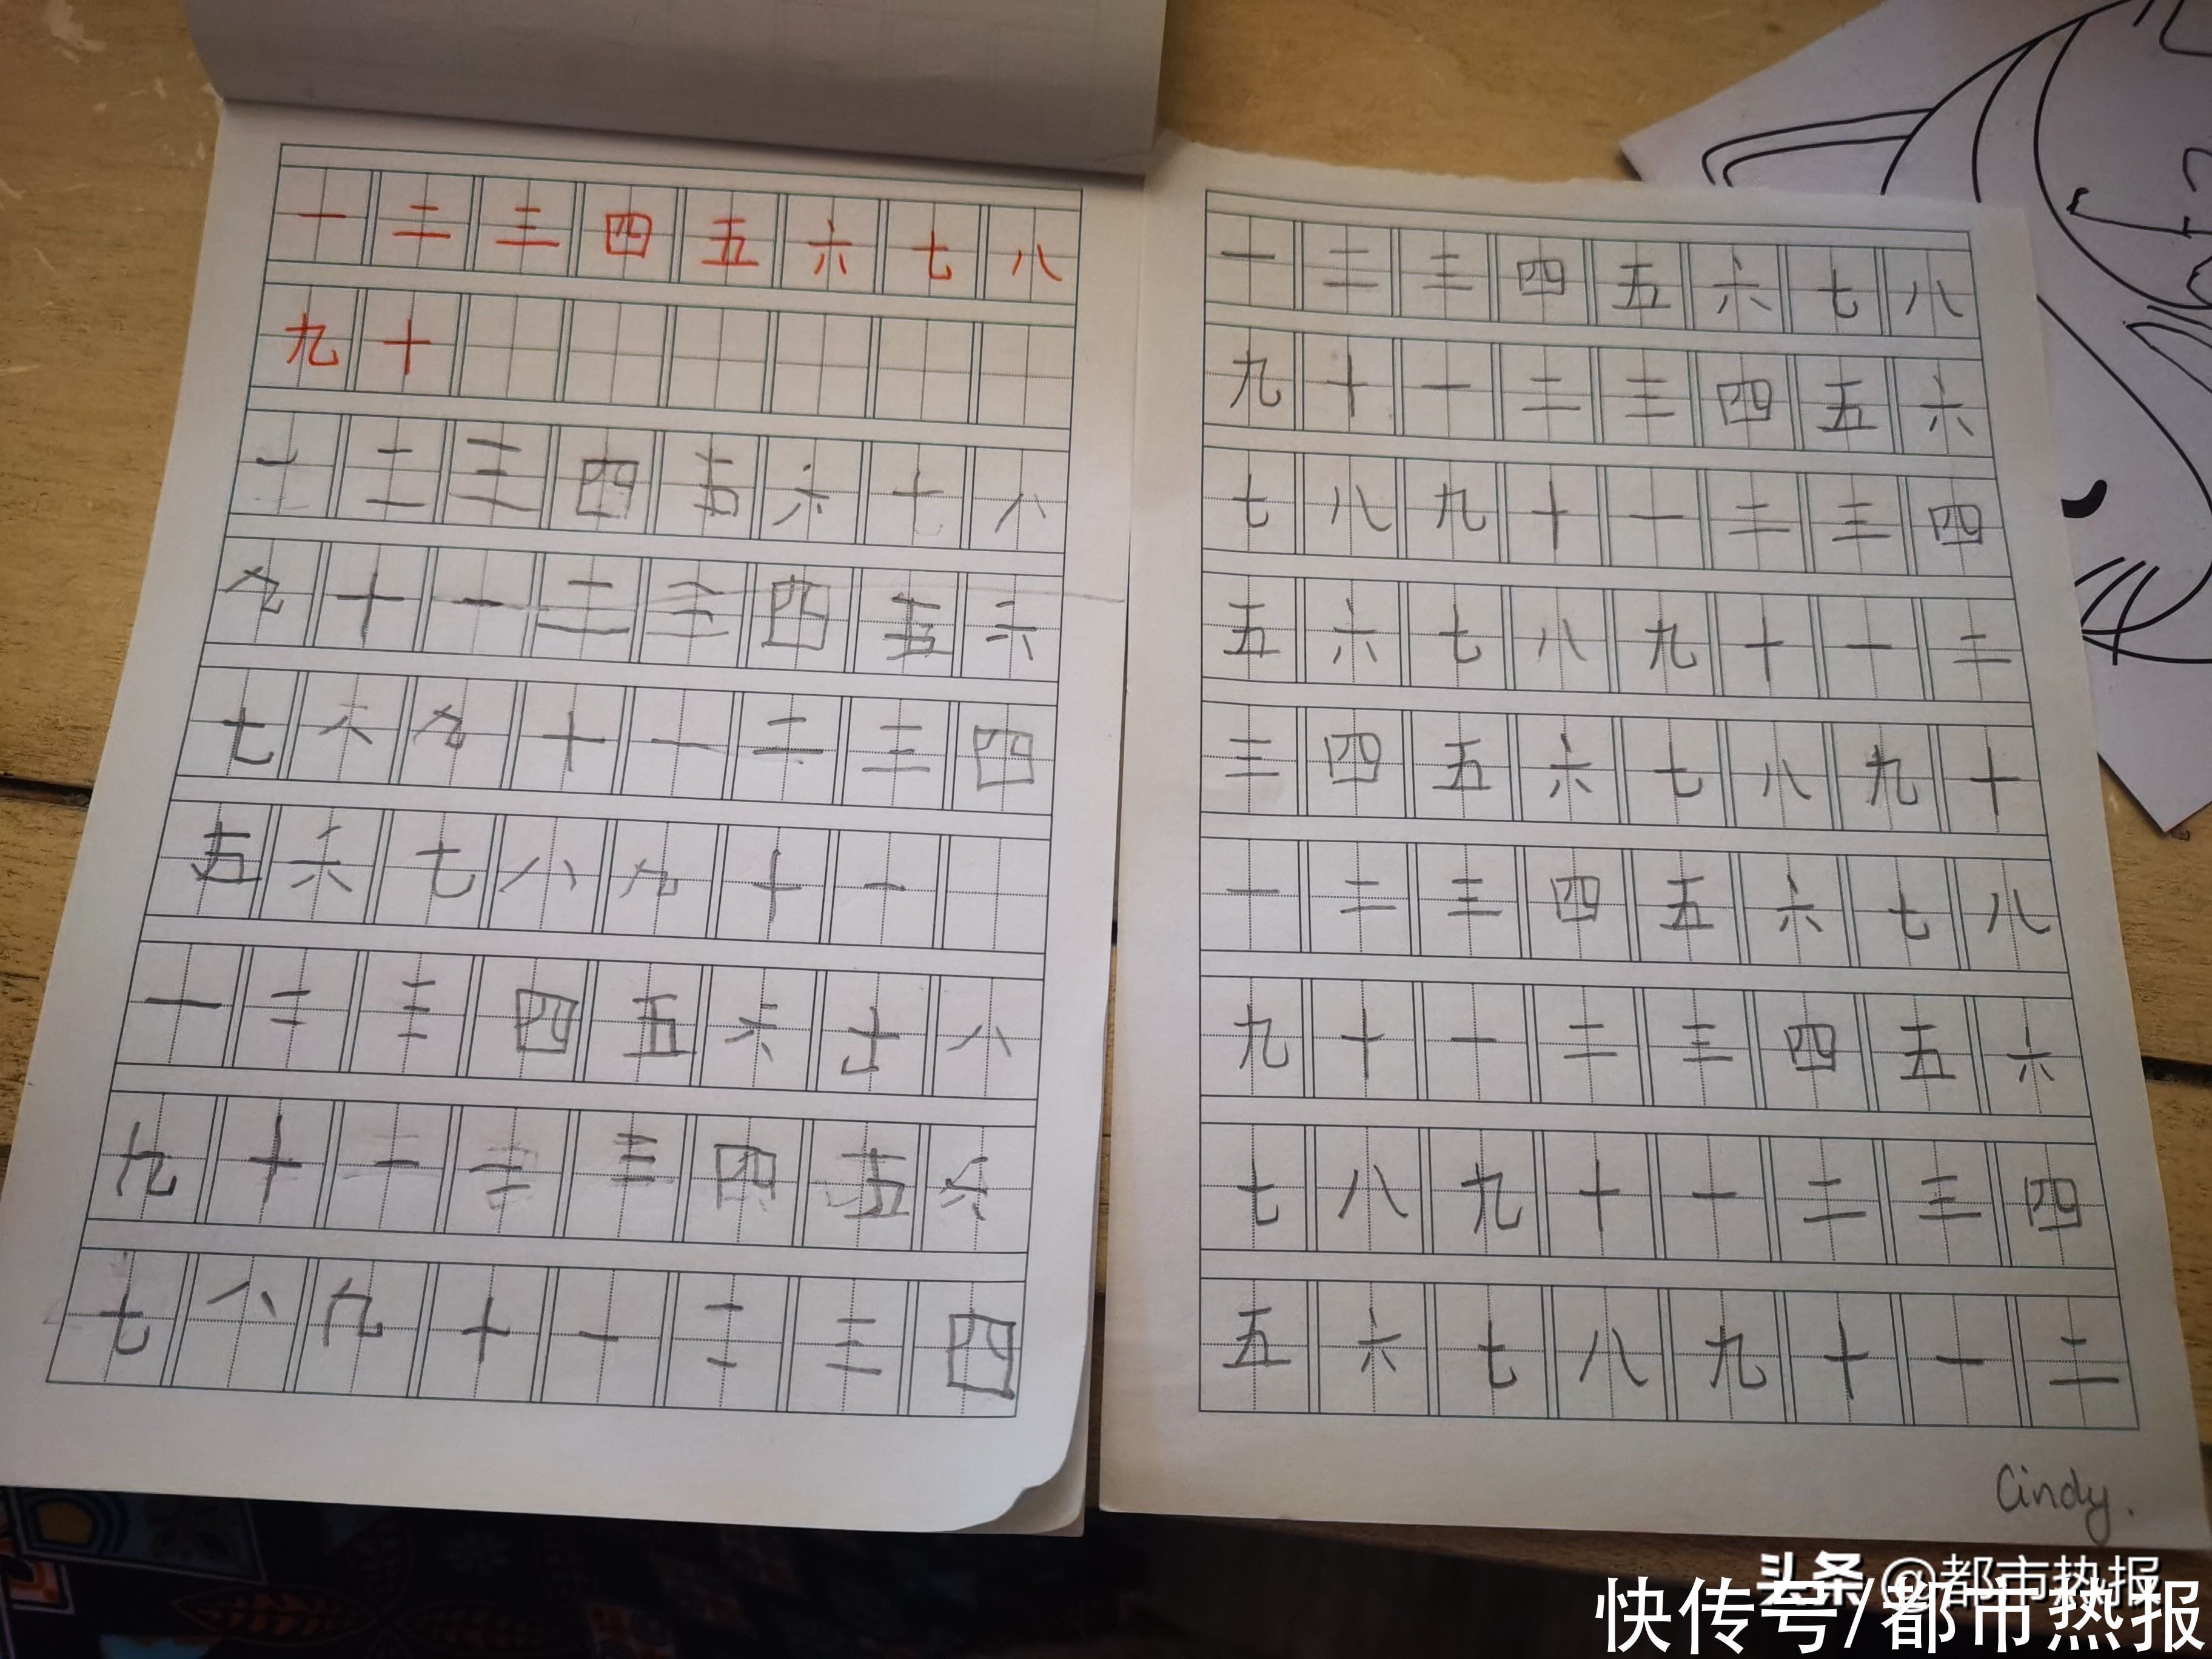 一二三四五六七八
九十
一二三四五六七八
九十一二三四五六
七六九十一二三四
五六七八九十一
一二三四五六七八
九十一二三四五六
七八九十一二三四
一二三四五六七八
九十一二三四五六
七八九十一二三四
五六七八九十一二
三四五六七八九十
一二三四五六七八
九十一二三四五六
七八九十一二三四
五六七八九十一二
Cindy.
头条 @都市热报
快传号/都市热报